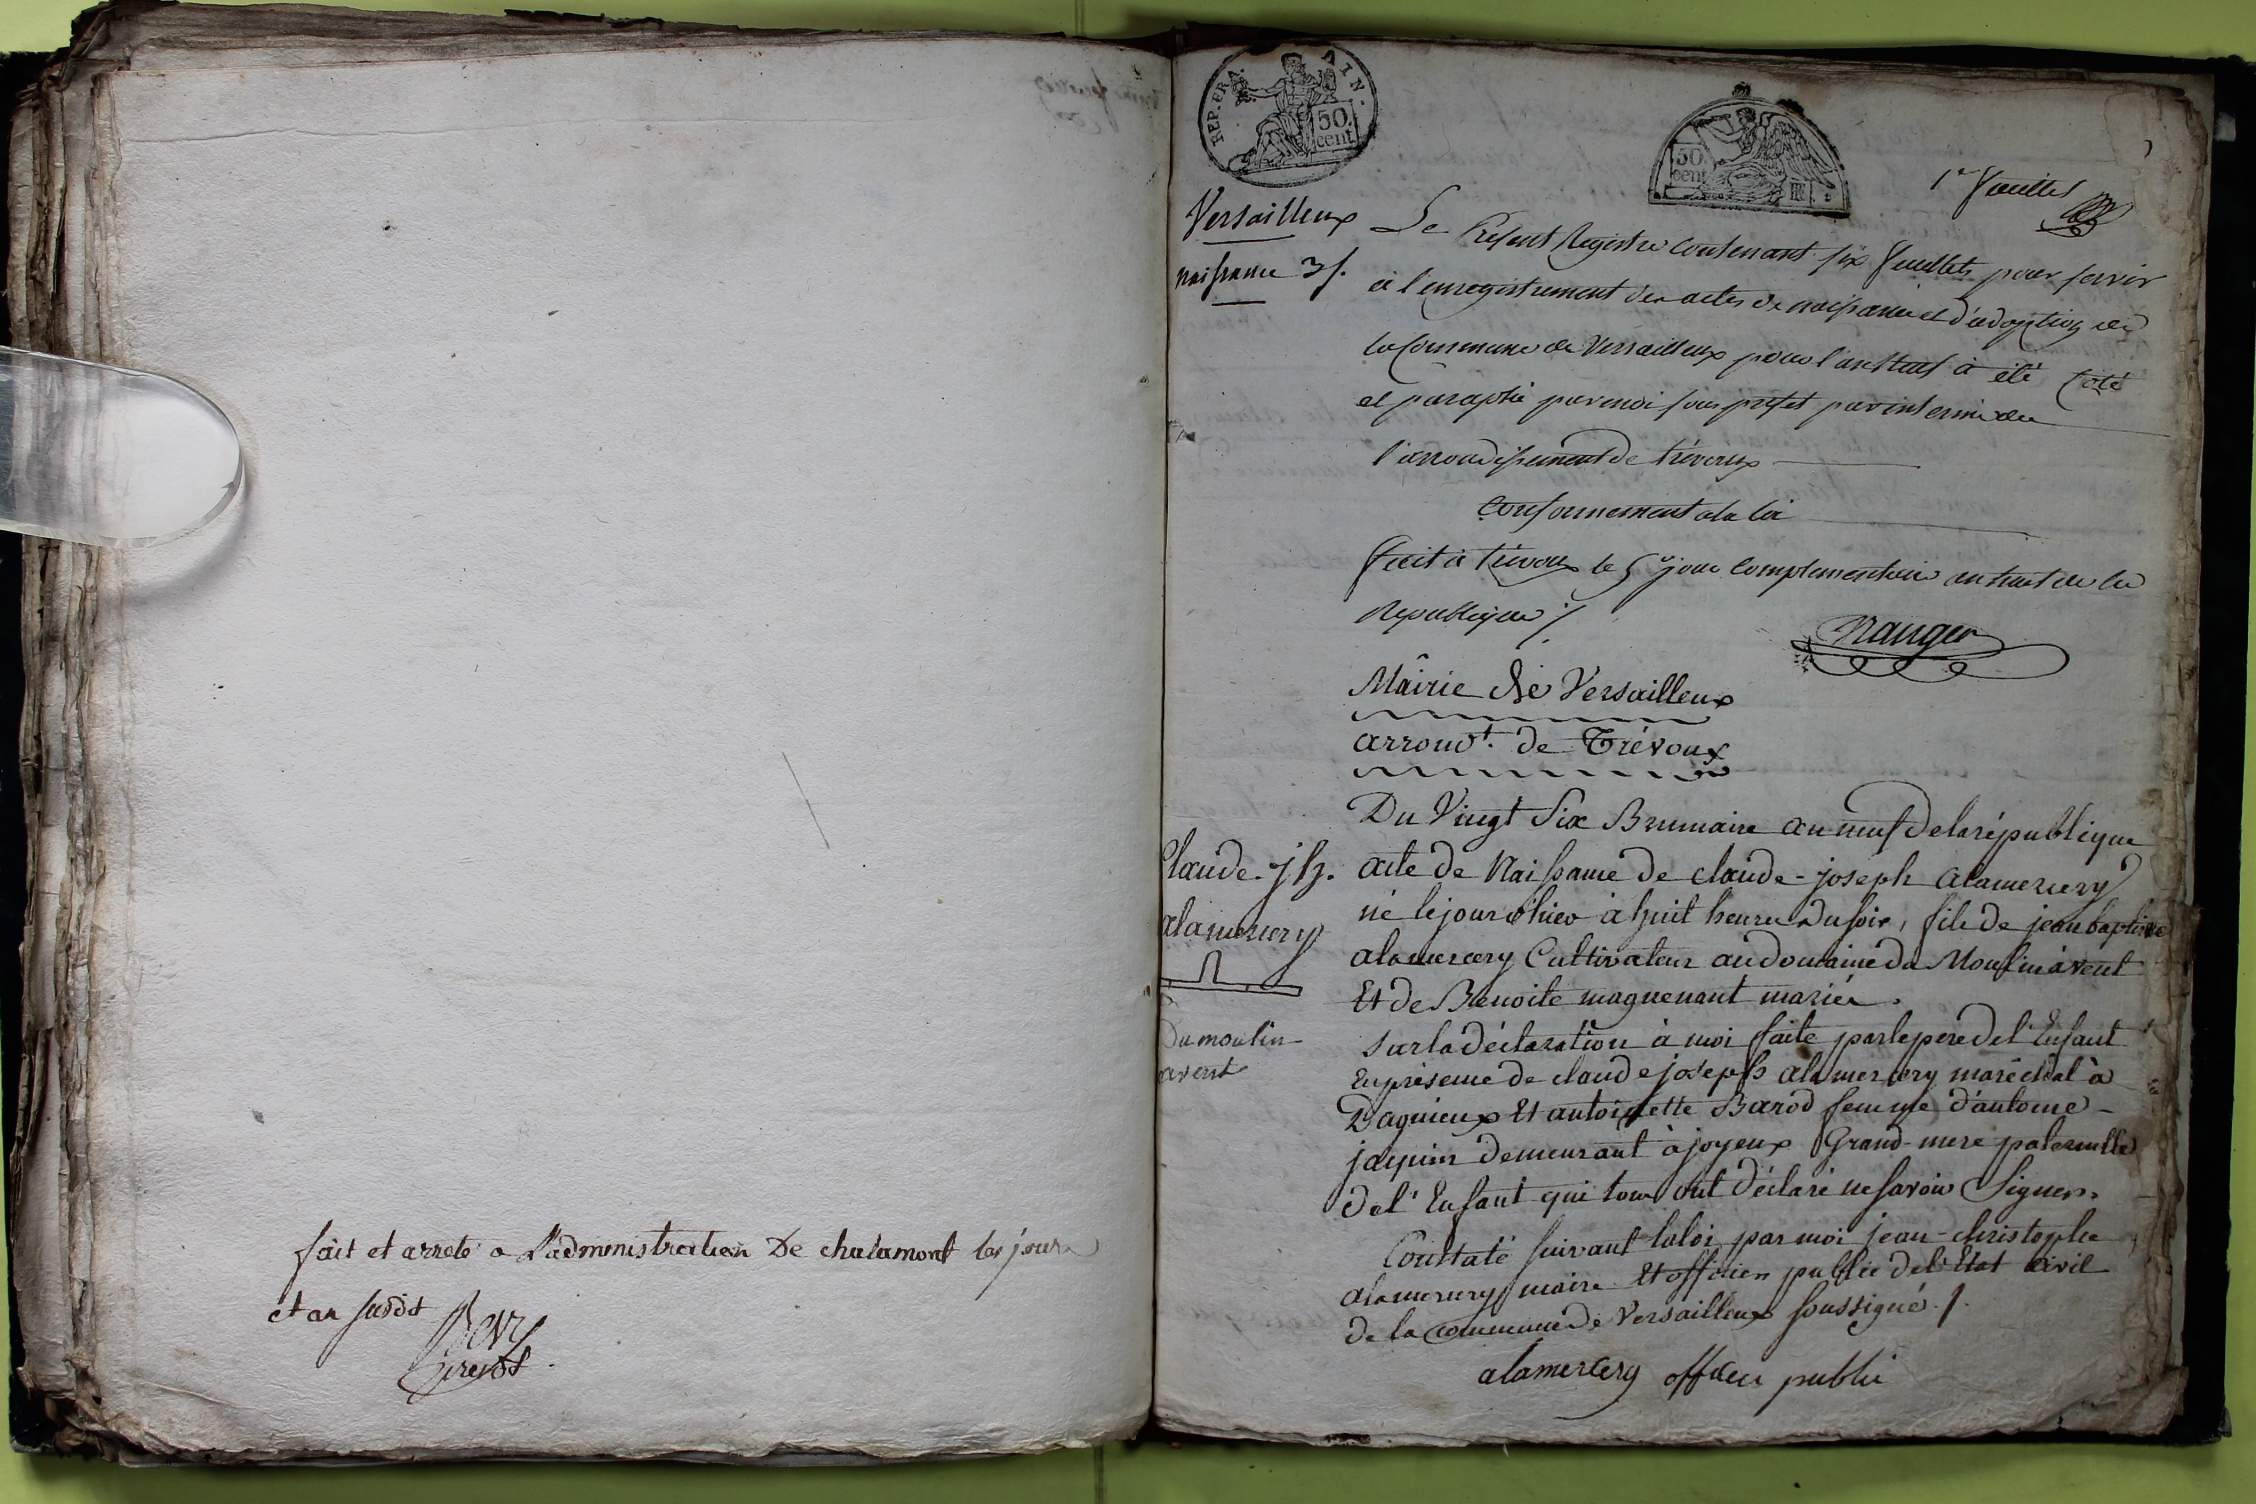 fait et arreté a L'administration De chalamont les jour
et an susdit
REP. FRA.
AIN.
50.
cent
50.
cent
1er feuillet
Versailleux
naissance 3 f.
Le Présent Registre contenant six feuillets pour servir
à l'enregistrement des actes de naissance et d'adoption de
la commune de Versailleux pour l'an neuf à été Coté
et paraphé par moi sous prefet par interim de
l'arrondissement de trévoux
Conformement a la loi
fait à trévoux le 5e jour complementaire an huit de la
Republique /.
Mâirie de Versailleux
arrondt. de Trévoux
Claude-jh.
alamercery
Du moulin
avent
Du Vingt Six Brumaire an neuf de la république
acte de Naissance de claude-joseph alamercery
né le jour d'hier à huit heures du soir, fils de jean baptiste
alamercery Cultivateur au domaine du Moulin à vent
Et de Benoite maguenant mariés.
Sur la déclaration à moi faite par le pere de l'Enfant
En présence de claude joseph alamercery maréchal à
Dagnieux Et antoinette Barod femme d'antoine
jaquin demeurant à joyeux Grand-mere paternelle
de l'Enfant qui tous ont déclaré ne savoir Signer.
Constaté suivant la loi par moi jean-christophe
alamercery maire Et officier public de l'Etat civil
de la commune de Versailleux soussigné. /.
alamercery officier public